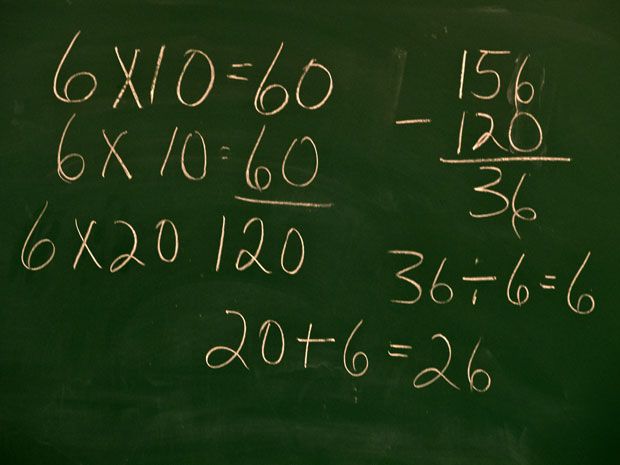 6X10=60
6X10=60
6X20 120
156
- 120
36
36÷6=6
20+6=26